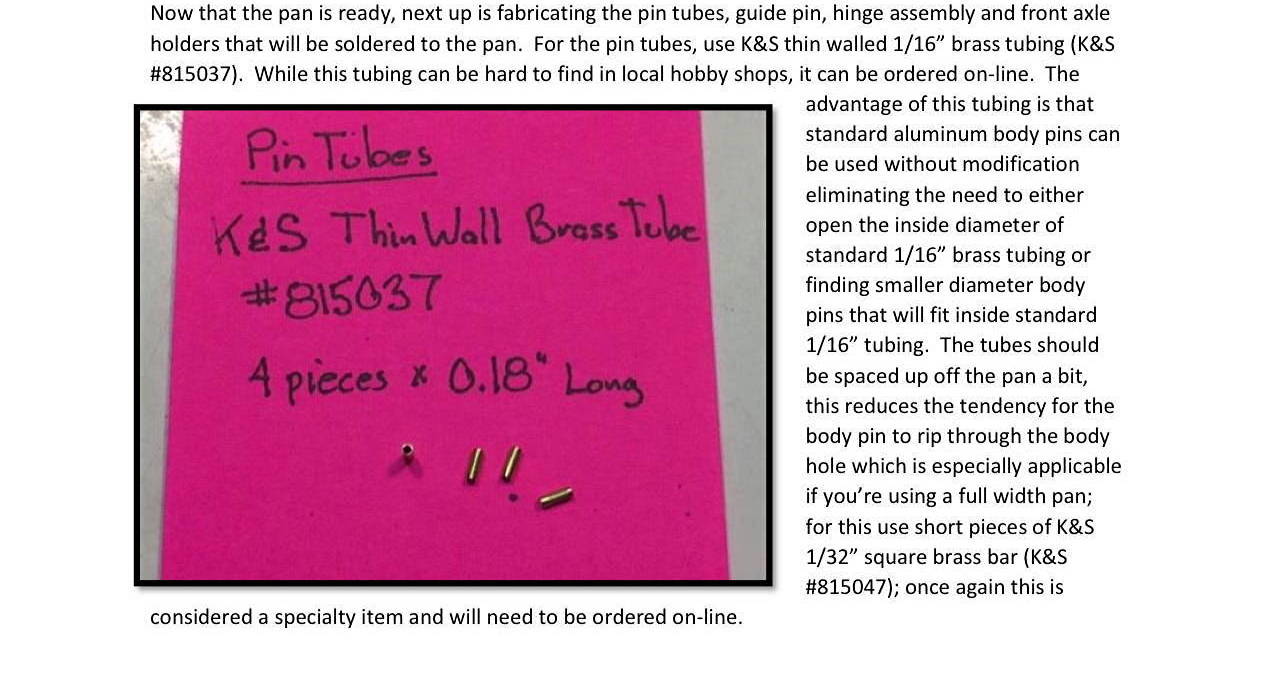 Now that the pan is ready, next up is fabricating the pin tubes, guide pin, hinge assembly and front axle
holders that will be soldered to the pan.  For the pin tubes, use K&S thin walled 1/16” brass tubing (K&S
#815037).  While this tubing can be hard to find in local hobby shops, it can be ordered on-line.  The
advantage of this tubing is that
standard aluminum body pins can
be used without modification
eliminating the need to either
open the inside diameter of
standard 1/16” brass tubing or
finding smaller diameter body
pins that will fit inside standard
1/16” tubing.  The tubes should
be spaced up off the pan a bit,
this reduces the tendency for the
body pin to rip through the body
hole which is especially applicable
if you’re using a full width pan;
for this use short pieces of K&S
1/32” square brass bar (K&S
#815047); once again this is
considered a specialty item and will need to be ordered on-line.
Pin Tubes
K&S Thin Wall Brass Tube
#815037
4 pieces x 0.18" Long